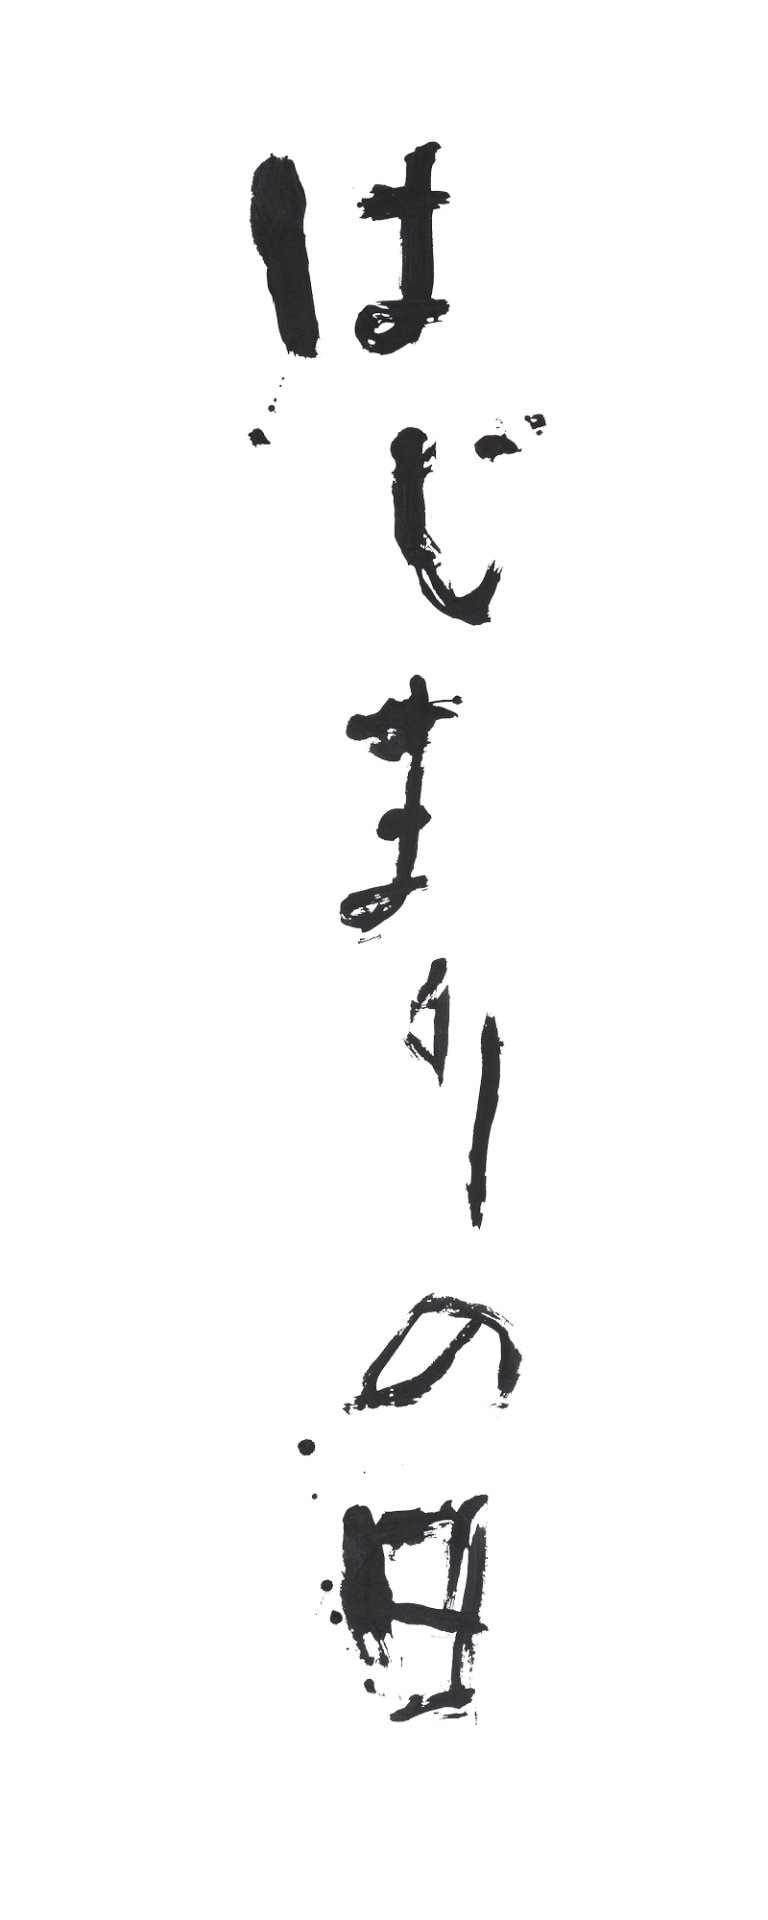 はじまりの日